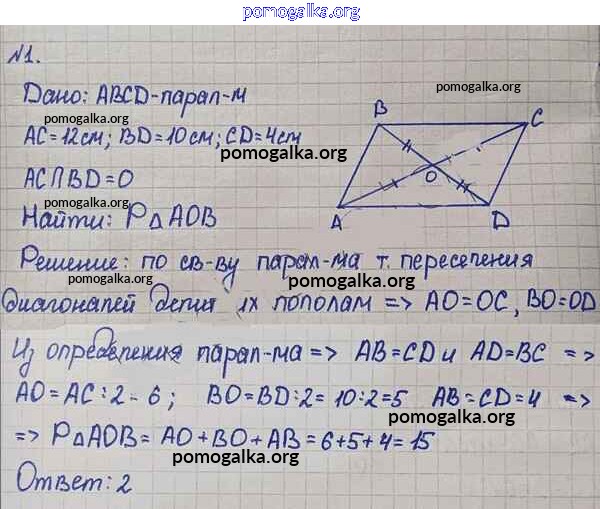 pomogalka.org
№1.
Дано: ABCD-парал-м
pomogalka.org
pomogalka.org
B
C
AC=12см; BD=10см; CD=4см
pomogalka.org
AC∩BD=O
O
pomogalka.org
Найти: P△AOB
A
D
Решение: по св-ву парал-ма т. пересечения
pomogalka.org
pomogalka.org
диагоналей делит их пополам => AO=OC, BO=OD
Из определения парал-ма => AB=CD и AD=BC =>
AO=AC:2-6; BO=BD:2=10:2=5 AB=CD=4 =>
pomogalka.org
=> P△AOB= AO+BO+AB=6+5+4=15
pomogalka.org
Ответ: 2